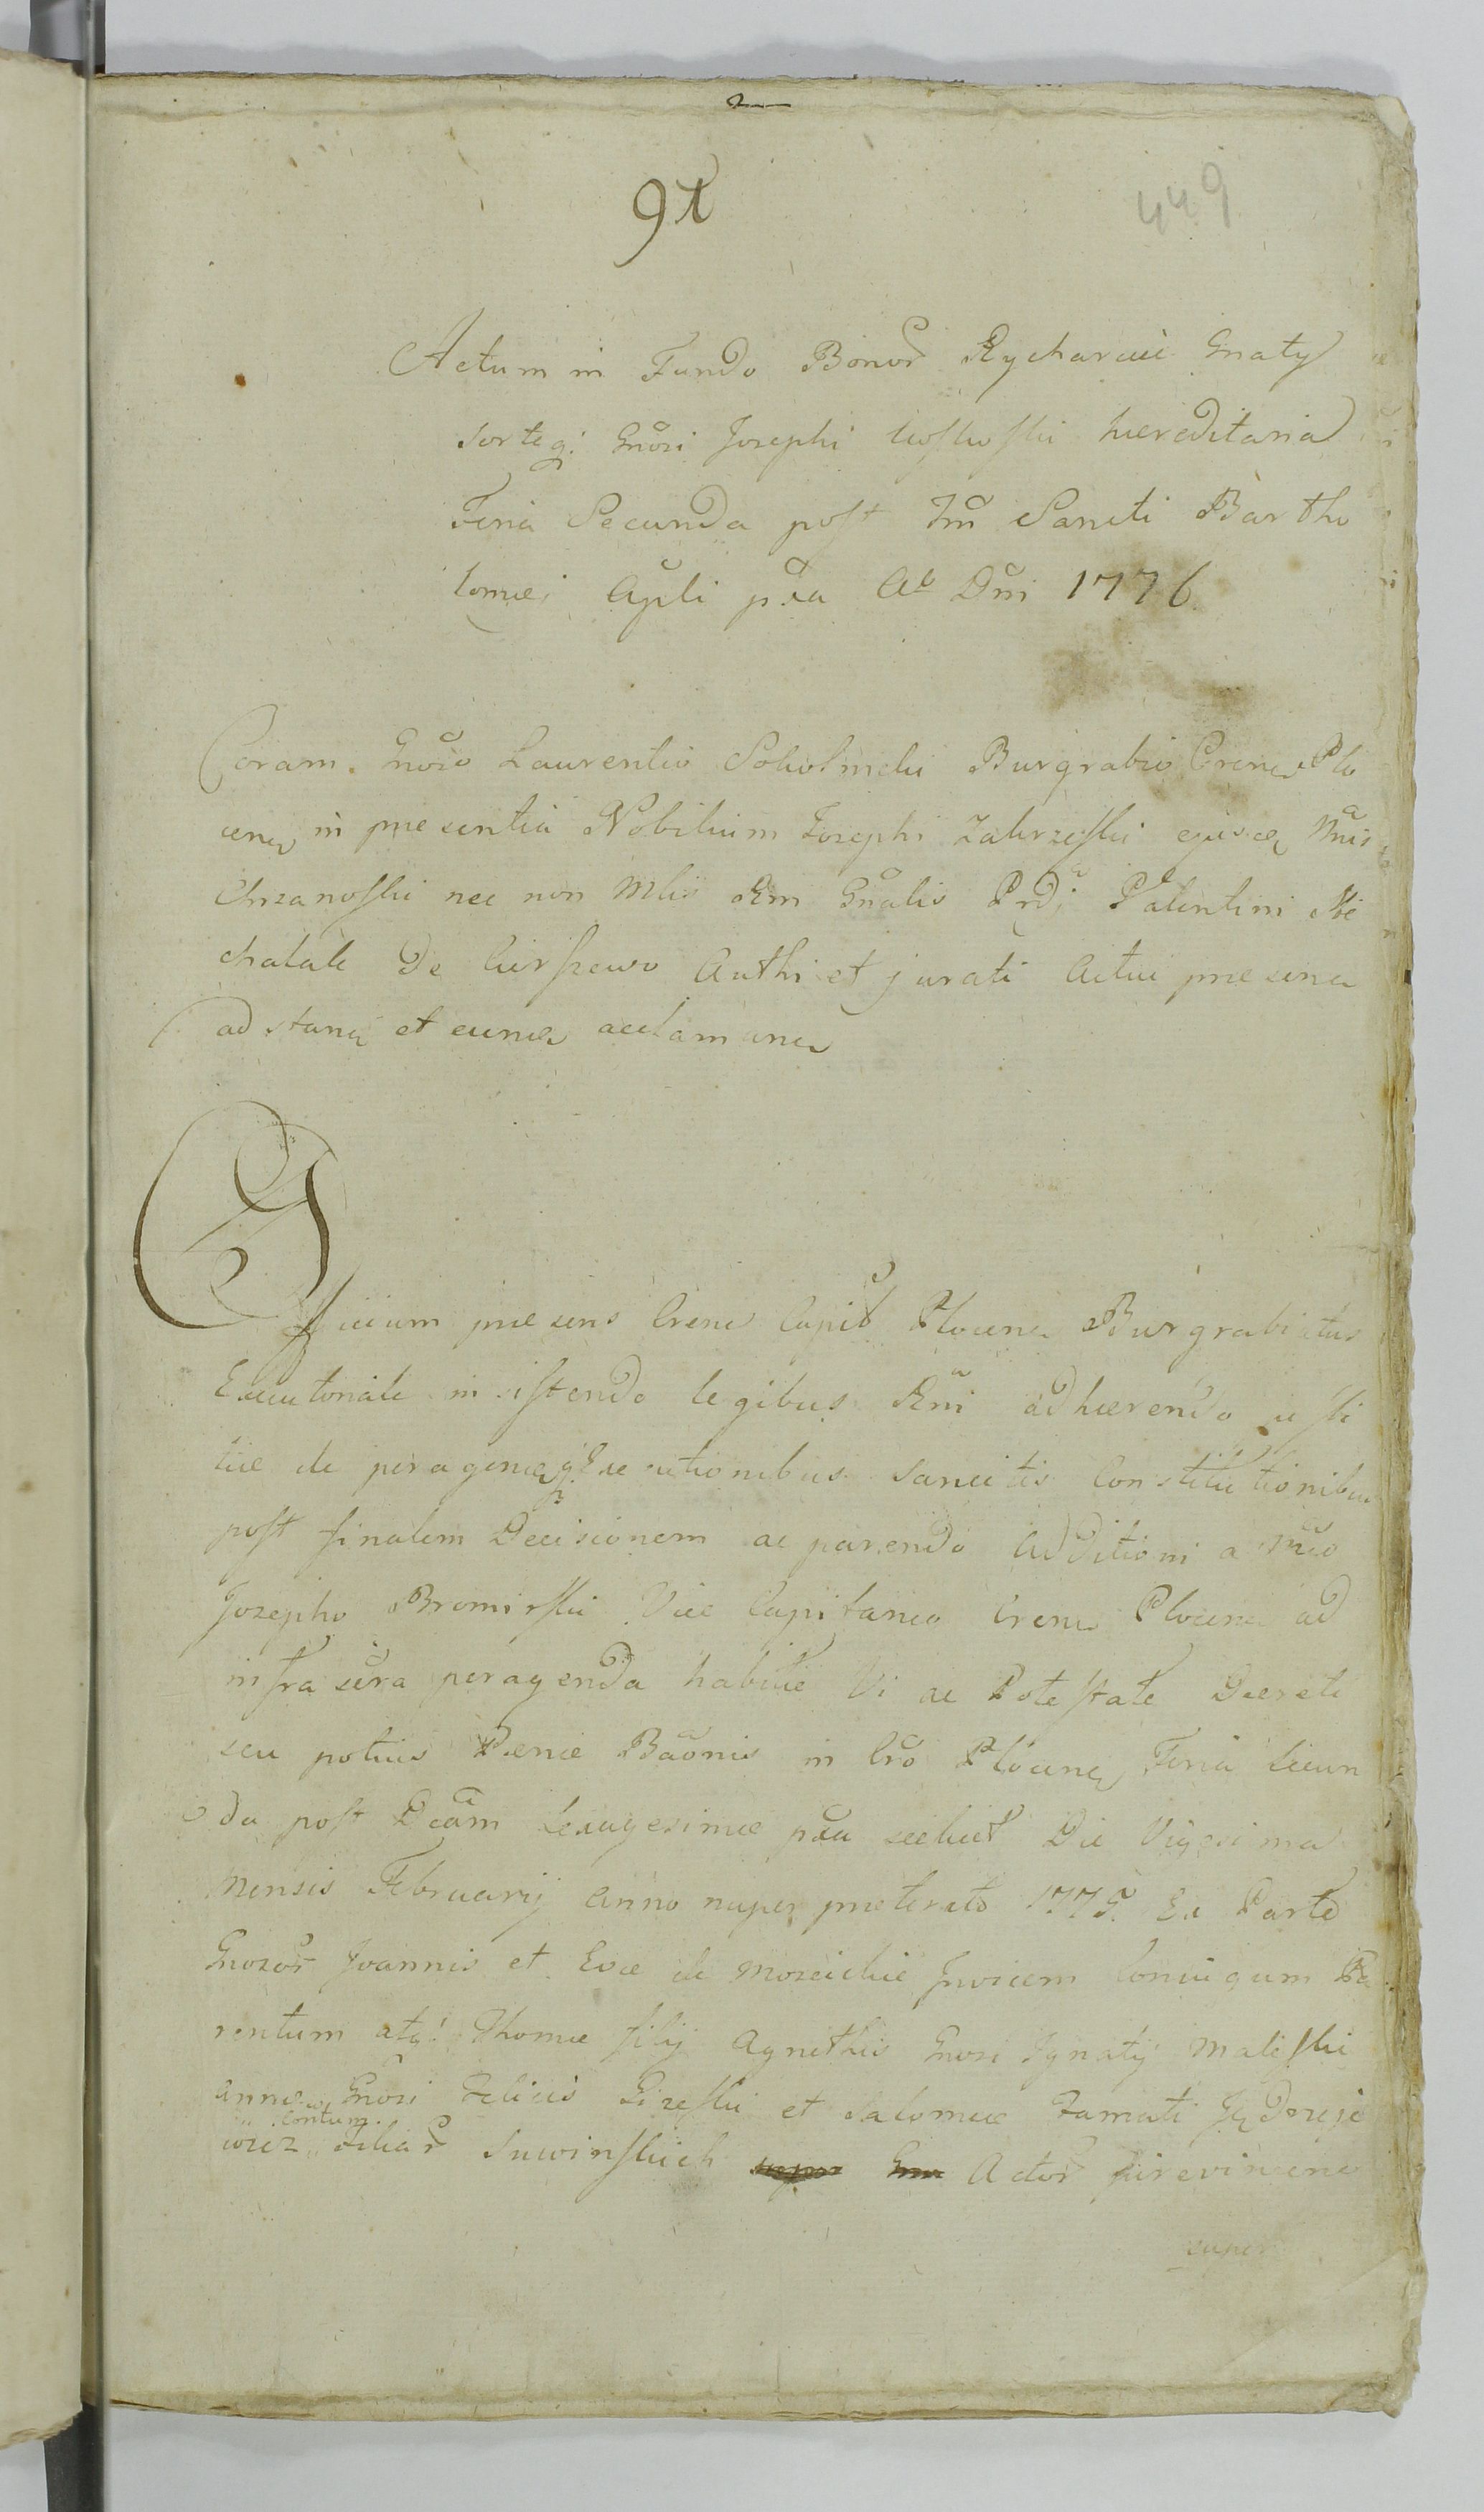 91
449
Actum in Fundo Bonor̃ Rycharcice Gnaty
sorteq: Gñosi Josephi hæreditaria
Feria Secunda post Sancti Bartho
lomæi Apl̃i px̃a Aõ Dñi 1776
Coram Gnõso Laurentio Sokolnicki Burgrabio Crens Plo
cens in præsentia Nobilium Josephi Zakrzeſki
Chrzanoſki nec non Mlis Rñi Gñalis Valentini Mi
chalak De Authi et jurati Actui præsens
adstans et eunds acclamans
Officium præsens Crens Capit̃ Plocens Burgrabiatus
Executoriale insistendo legibus Rñi adhærendo
tiæ de peragends Executionibus sancitis Constitutionibus
post finalem Decisionem ac parendo Additioni a
Josepho Bromirſki Vice Capitaneo Crens Plocens ad
infra scr̃a peragenda habitæ Vi ac Potestate Decreti
seu potius Pænæ Bãonis in Crõ Plocens Feria Secun
da post Dcãm Sexagesimæ px̃a scilicet Die Vigesima
Mensis Februarij Anno nuper præterito 1775. Ex Parte
Gnosor̃ Joannis et Evæ de Invicem Coniugum Pa
rentum atq: Thomæ filij Agnethis Gnosi Ignatij Maleſki
Annæ Gnosi Felicis Gizeſki et Salomeæ Famati Jędrzeje
wicz Contum. Filiar̃ Suwinſkich Actor̃
super